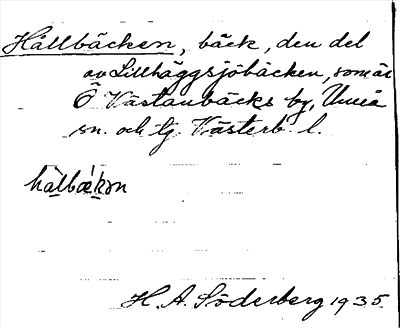 Hällbäcken, bäck, den del
av Lillhäggsjöbäcken, som är
Ö Västanbäcks by, Umeå
sn. och tg. Västerb. l.
H. A. Söderberg 1935.